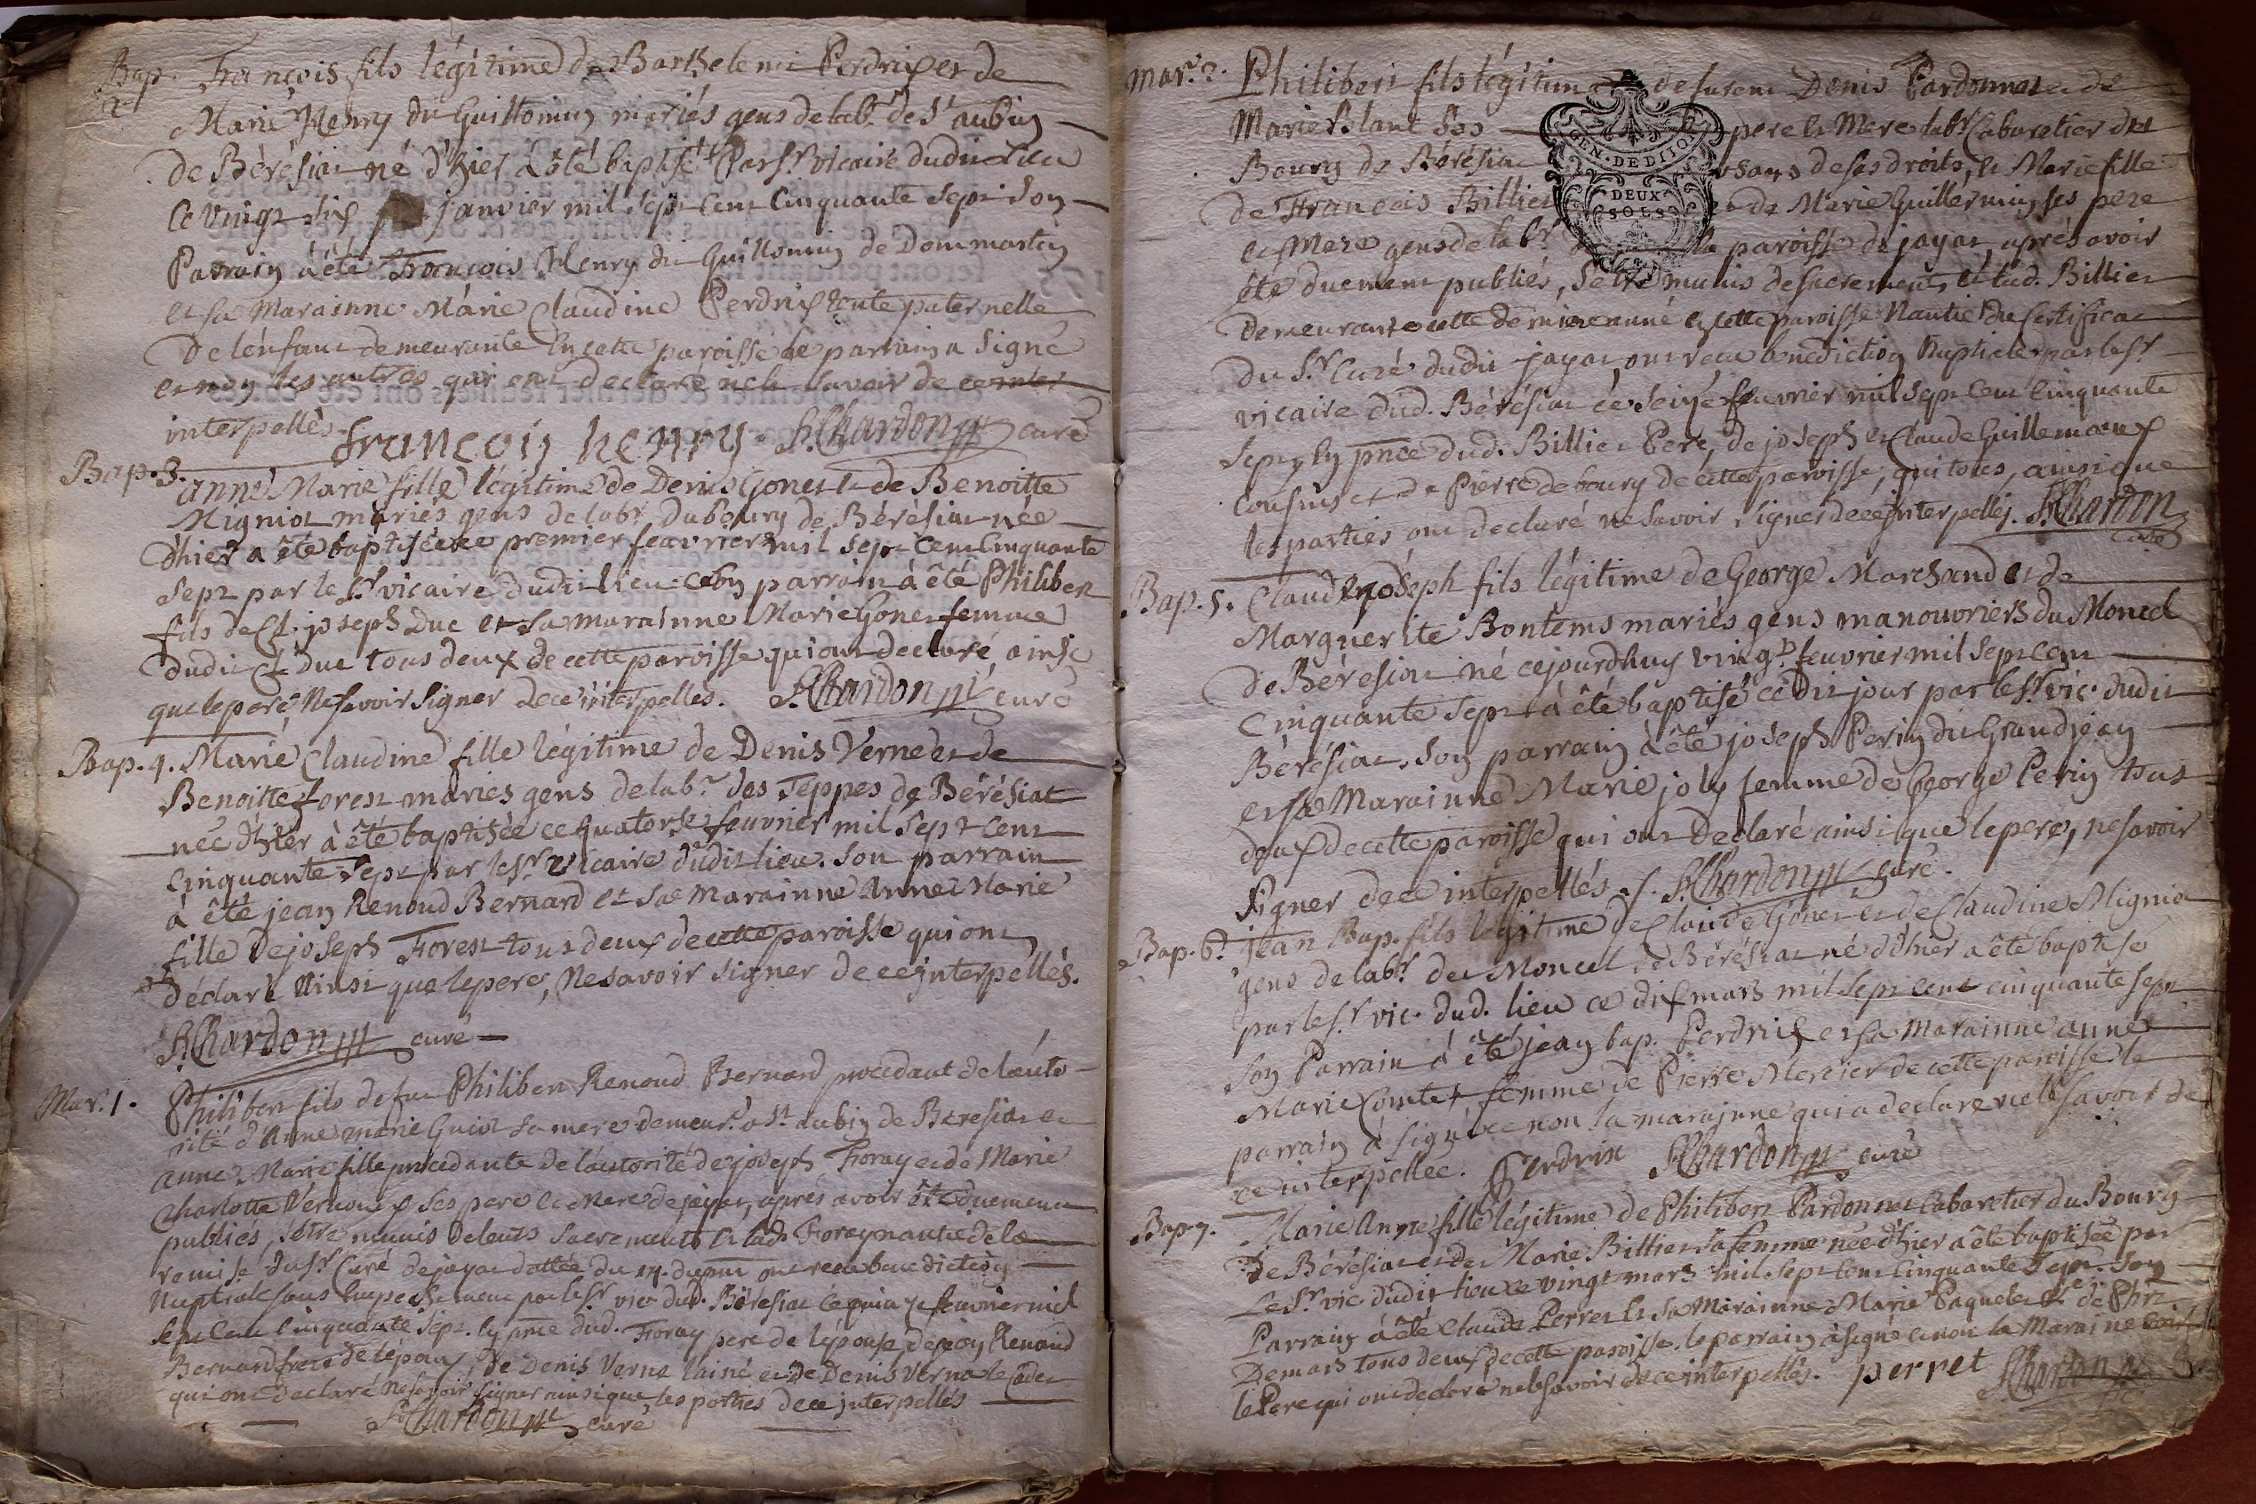 Bap. 2 François fils légitime de Barthelemi Perdrix et de
Marie Henry du Guillomin mariés gens de labr. de St aubin
de Bérésiat né d'hier à été baptisé par Sr. vicaire dudit lieu
ce vingt six janvier mil sept cent cinquante sept son
Parrain à été François Henry du Guillomin de Dommartin
et sa Marainne Marie Claudine Perdrix tente paternelle
de lénfant demeurante en cette paroisse le parrain a signé
et non les autres qui ont declaré ne le savoir de ce
interpellés. francois henry F. Chardon curé
Bap. 3. anne Marie fille légitime de Denis Gonet et de Benoitte
Migniot mariés gens de labr. du bourg de Bérésiat née
d'hier a été baptisée ce premier feuvrier mil sept cent cinquante
sept par le Sr. vicaire dudit lieu son parrain à été Philibert
fils de Cl. joseph Duc et sa marainne Marie Gonet femme
dudit Cl. Duc tous deux de cette paroisse qui ont declaré, ainsi
que le pere Ne savoir signer de ce interpelles. F. Chardon curé
Bap. 4. Marie Claudine fille légitime de Denis Verne et de
Benoitte forest mariés gens de labr. des Teppes de Bérésiat
née d'hier à été baptisée ce quatorze feuvrier mil sept cent
cinquante sept par le Sr. vicaire dudit lieu. son parrain
à été jean Renoud Bernard et sa marainne Anne Marie
fille de joseph Forest tous deux de cette paroisse qui ont
déclaré ainsi que le pere, Ne savoir signer de ce interpellés.
F. Chardon curé
Mar. 1. Philibert fils de feu Philibert Renoud Bernard procedant de l'auto-
rité d'Anne marie Guiot sa mere demeur. à St. aubin de Beresiat et
anne Marie fille procedante de l'autorité de joseph Foray et de Marie
Charlotte Vernoux ses pere et mere de jayat, apres avoir été duement
publiés, s'être munis de leurs sacrements et lad. Foray nantie de la
remise du Sr. Curé de jayat dattée du 14. du pnt ont receu benediction
Nuptiale sans empechement par le Sr vic. dud. Bérésiat ce quinze feuvrier mil
sept cent cinquante sept. en pnce dud. Foray pere de l'épouse de jean Renoud
Bernard frere de l'époux, de Denis Verne l'ainé et de Denis Verne le Cadet
qui ont declaré Ne savoir signer ainsi que les parties de ce interpellés
F. Chardon curé
mar. 2. Philibert fils légitime de furent Denis Pardonnet et de
Marie Blanc ses pere et Mere labr. Cabaretier du
Bourg de Bérésiat usans de ses droits, et Marie fille
de François Billiet de Marie Guillermin ses pere
et Mere gens de labr. la paroisse de jayat, aprés avoir
été duement publiés, s'être munis de sacrements et lad. Billiet
demeurante cette derniere anné en cette paroisse Nantie du Certificat
du Sr. Curé dudit jayat ont receu benediction Nuptiale par le Sr.
vicaire dud. Bérésiat ce seize feuvrier mil sept cent cinquante
sept, en pnce dud. Billiet Pere, de joseph et Claude Guillemaux
cousins et de Pierre debourg de cette paroisse, qui tous, ainsi que
les parties ont declaré ne savoir signer de ce interpellés. F. Chardon
curé
Bap. 5. Claude joseph fils légitime de George Marchand et de
Marguerite Bontems mariés gens manouvriers du Moncel
de Béresiat né cejourdhuy vingt feuvrier mil sept cent
cinquante sept à été baptisé ce dit jour par le Sr. vic. dudit
Bérésiat, son parrain à été joseph Perin du Grandjean
et sa Marainne Marie joly femme de George Perin tous
deux de cette paroisse qui ont Declaré ainsi que le pere, ne savoir
signer de ce interpellés. F. Chardon curé.
Bap. 6. jean Bap. fils légitime de Claude Gonet et de Claudine Migniot
gens de labr. du Moncel de Bérésiat né d'hier a été baptisé
par le Sr. vic. dud. lieu ce dix mars mil sept cent cinquante sept
son Parrain à été jean bap. Perdrix et sa Marainne anne
Marie Comte femme de Pierre Mercier de cette paroisse le
parrain à signé et non la marainne qui a declaré ne le savoir de
ce interpellee. Perdrix F. Chardon curé
Bap. 7. Marie Anne fille légitime de Philibert Pardonnet Cabaretier du Bourg
de Bérésiat et de Marie Billiet sa femme née d'hier à été baptisée par
le Sr. vic. dudit lieu ce vingt mars mil sept cent cinquante sept. Son
Parrain à été Claude Perret et sa Marainne Marie Paquelet fe. de Phi.
Demars tous deux de cette paroisse. le parrain à signé et non la Maraine
le Pere qui ont declaré ne le savoir de ce interpellés. perret F. Chardon
GEN. DE DIJON
DEUX
SOLS